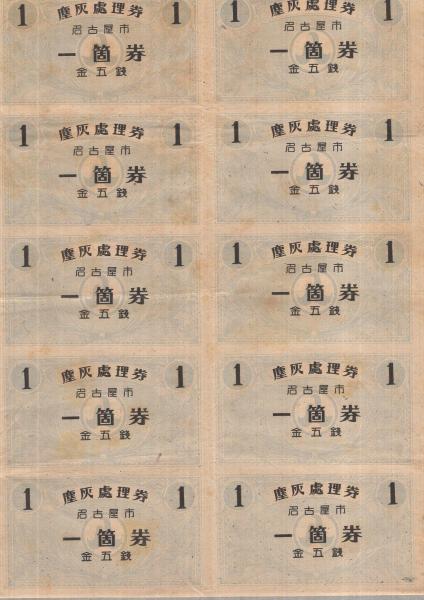 1 塵灰處理券 1
名古屋市
一箇券
金五銭
1 塵灰處理券 1
名古屋市
一箇券
金五銭
1 塵灰處理券 1
名古屋市
一箇券
金五銭
1 塵灰處理券 1
名古屋市
一箇券
金五銭
1 塵灰處理券 1
名古屋市
一箇券
金五銭
1 塵灰處理券 1
名古屋市
一箇券
金五銭
1 塵灰處理券 1
名古屋市
一箇券
金五銭
1 塵灰處理券 1
名古屋市
一箇券
金五銭
1 塵灰處理券 1
名古屋市
一箇券
金五銭
1 塵灰處理券 1
名古屋市
一箇券
金五銭